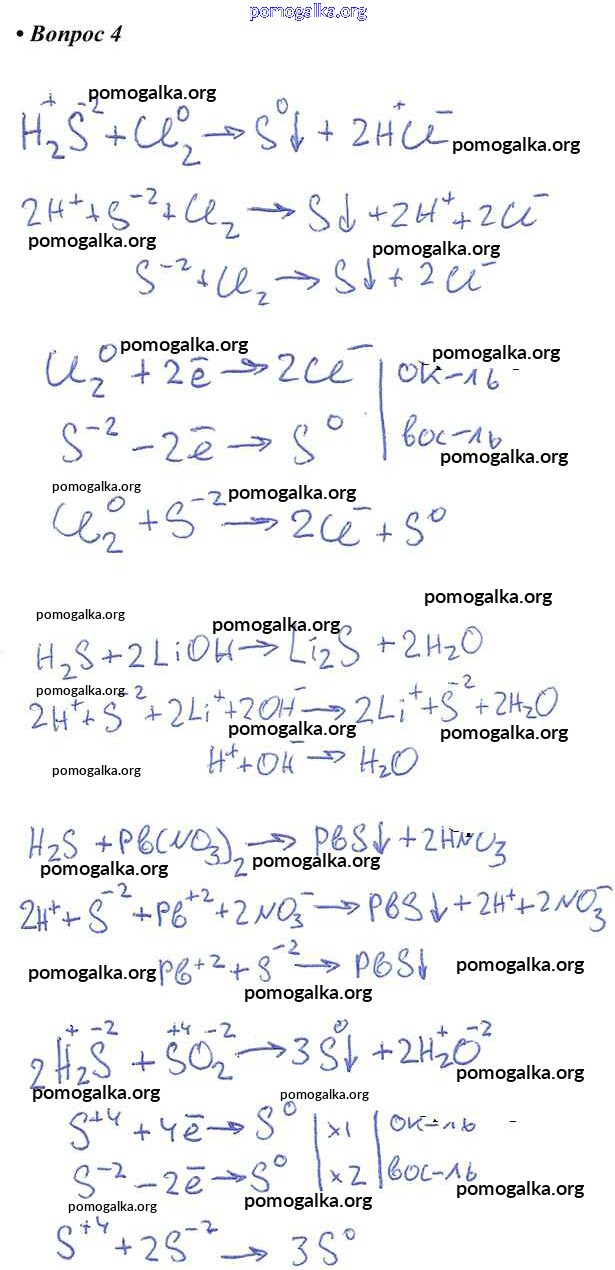 pomogalka.org
• Вопрос 4
pomogalka.org
H₂⁺S⁻² + Cl₂⁰ → S⁰↓ + 2H⁺Cl⁻ pomogalka.org
2H⁺ + S⁻² + Cl₂ → S↓ + 2H⁺ + 2Cl⁻
pomogalka.org pomogalka.org
S⁻² + Cl₂ → S↓ + 2Cl⁻
pomogalka.org pomogalka.org
Cl₂⁰ + 2ē → 2Cl⁻ | ок-ль
S⁻² - 2ē → S⁰ | вос-ль
pomogalka.org
pomogalka.org pomogalka.org
Cl₂⁰ + S⁻² → 2Cl⁻ + S⁰
pomogalka.org
pomogalka.org pomogalka.org
H₂S + 2LiOH → Li₂S + 2H₂O
pomogalka.org
2H⁺ + S⁻² + 2Li⁺ + 2OH⁻ → 2Li⁺ + S⁻² + 2H₂O
pomogalka.org pomogalka.org
H⁺ + OH⁻ → H₂O
pomogalka.org
H₂S + Pb(NO₃)₂ → PbS↓ + 2HNO₃
pomogalka.org pomogalka.org
2H⁺ + S⁻² + Pb⁺² + 2NO₃⁻ → PbS↓ + 2H⁺ + 2NO₃⁻
pomogalka.org Pb⁺² + S⁻² → PbS↓ pomogalka.org
pomogalka.org
2H₂⁺S⁻² + S⁺⁴O₂⁻² → 3S⁰↓ + 2H₂⁺O⁻²
pomogalka.org
pomogalka.org pomogalka.org
S⁺⁴ + 4ē → S⁰ | x1 | ок-ль
S⁻² - 2ē → S⁰ | x2 | вос-ль
pomogalka.org
pomogalka.org pomogalka.org
S⁺⁴ + 2S⁻² → 3S⁰